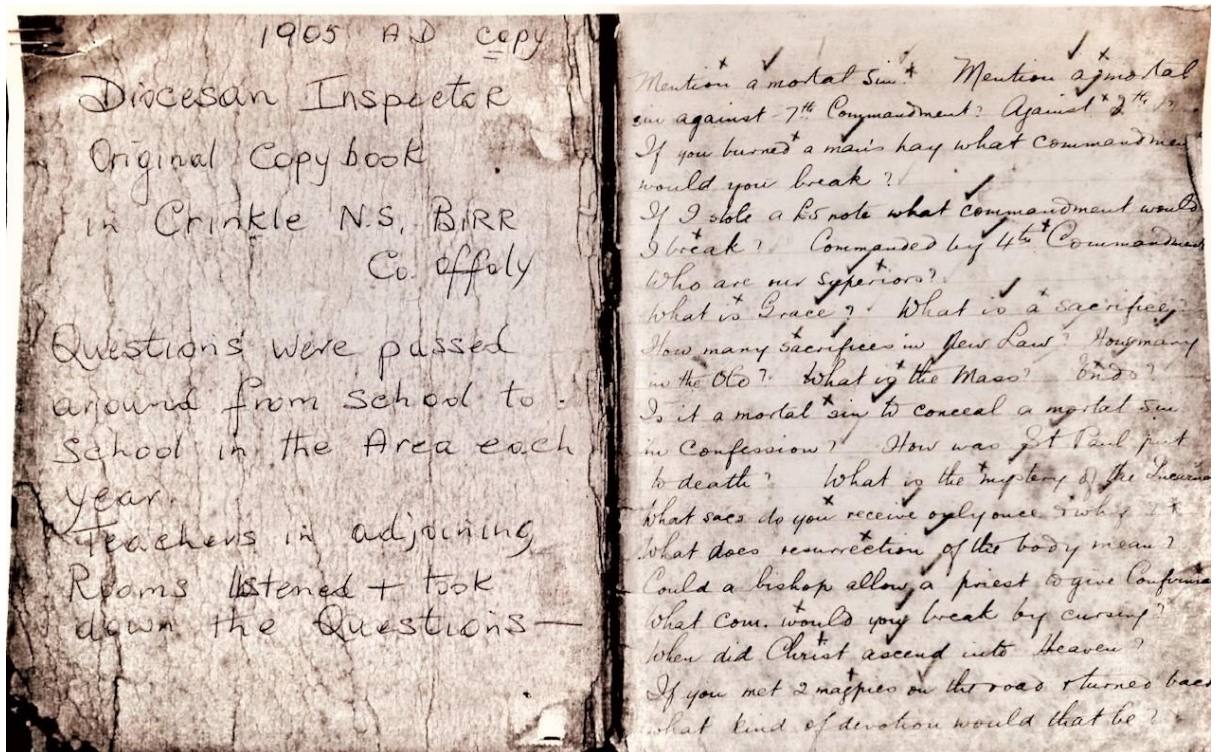 1905 AD copy
Diocesan Inspector
Original Copybook
in Crinkle N.S, BIRR
Co. Offaly
Questions were passed
around from School to
School in the Area each
year.
Teachers in adjoining
Rooms listened + took
down the Questions—
Mention a mortal sin? Mention a mortal
sin against 7th Commandment? Against
If you burned a man's hay what commandmen
would you break?
If I stole a £5 note what commandment would
I break? Commanded by 4th Commandment
Who are our superiors?
What is Grace? What is a sacrifice?
How many sacrifices in New Law? How many
in the Old? What is the Mass? Ends?
Is it a mortal sin to conceal a mortal sin
in Confession? How was St Paul put
to death? What is the mystery of the Incarna
What sacs do you receive only once & why?
What does resurrection of the body mean?
Could a bishop allow a priest to give Confirma
What Com. would you break by cursing?
When did Christ ascend into Heaven?
If you met 2 magpies on the road & turned back
what kind of devotion would that be?